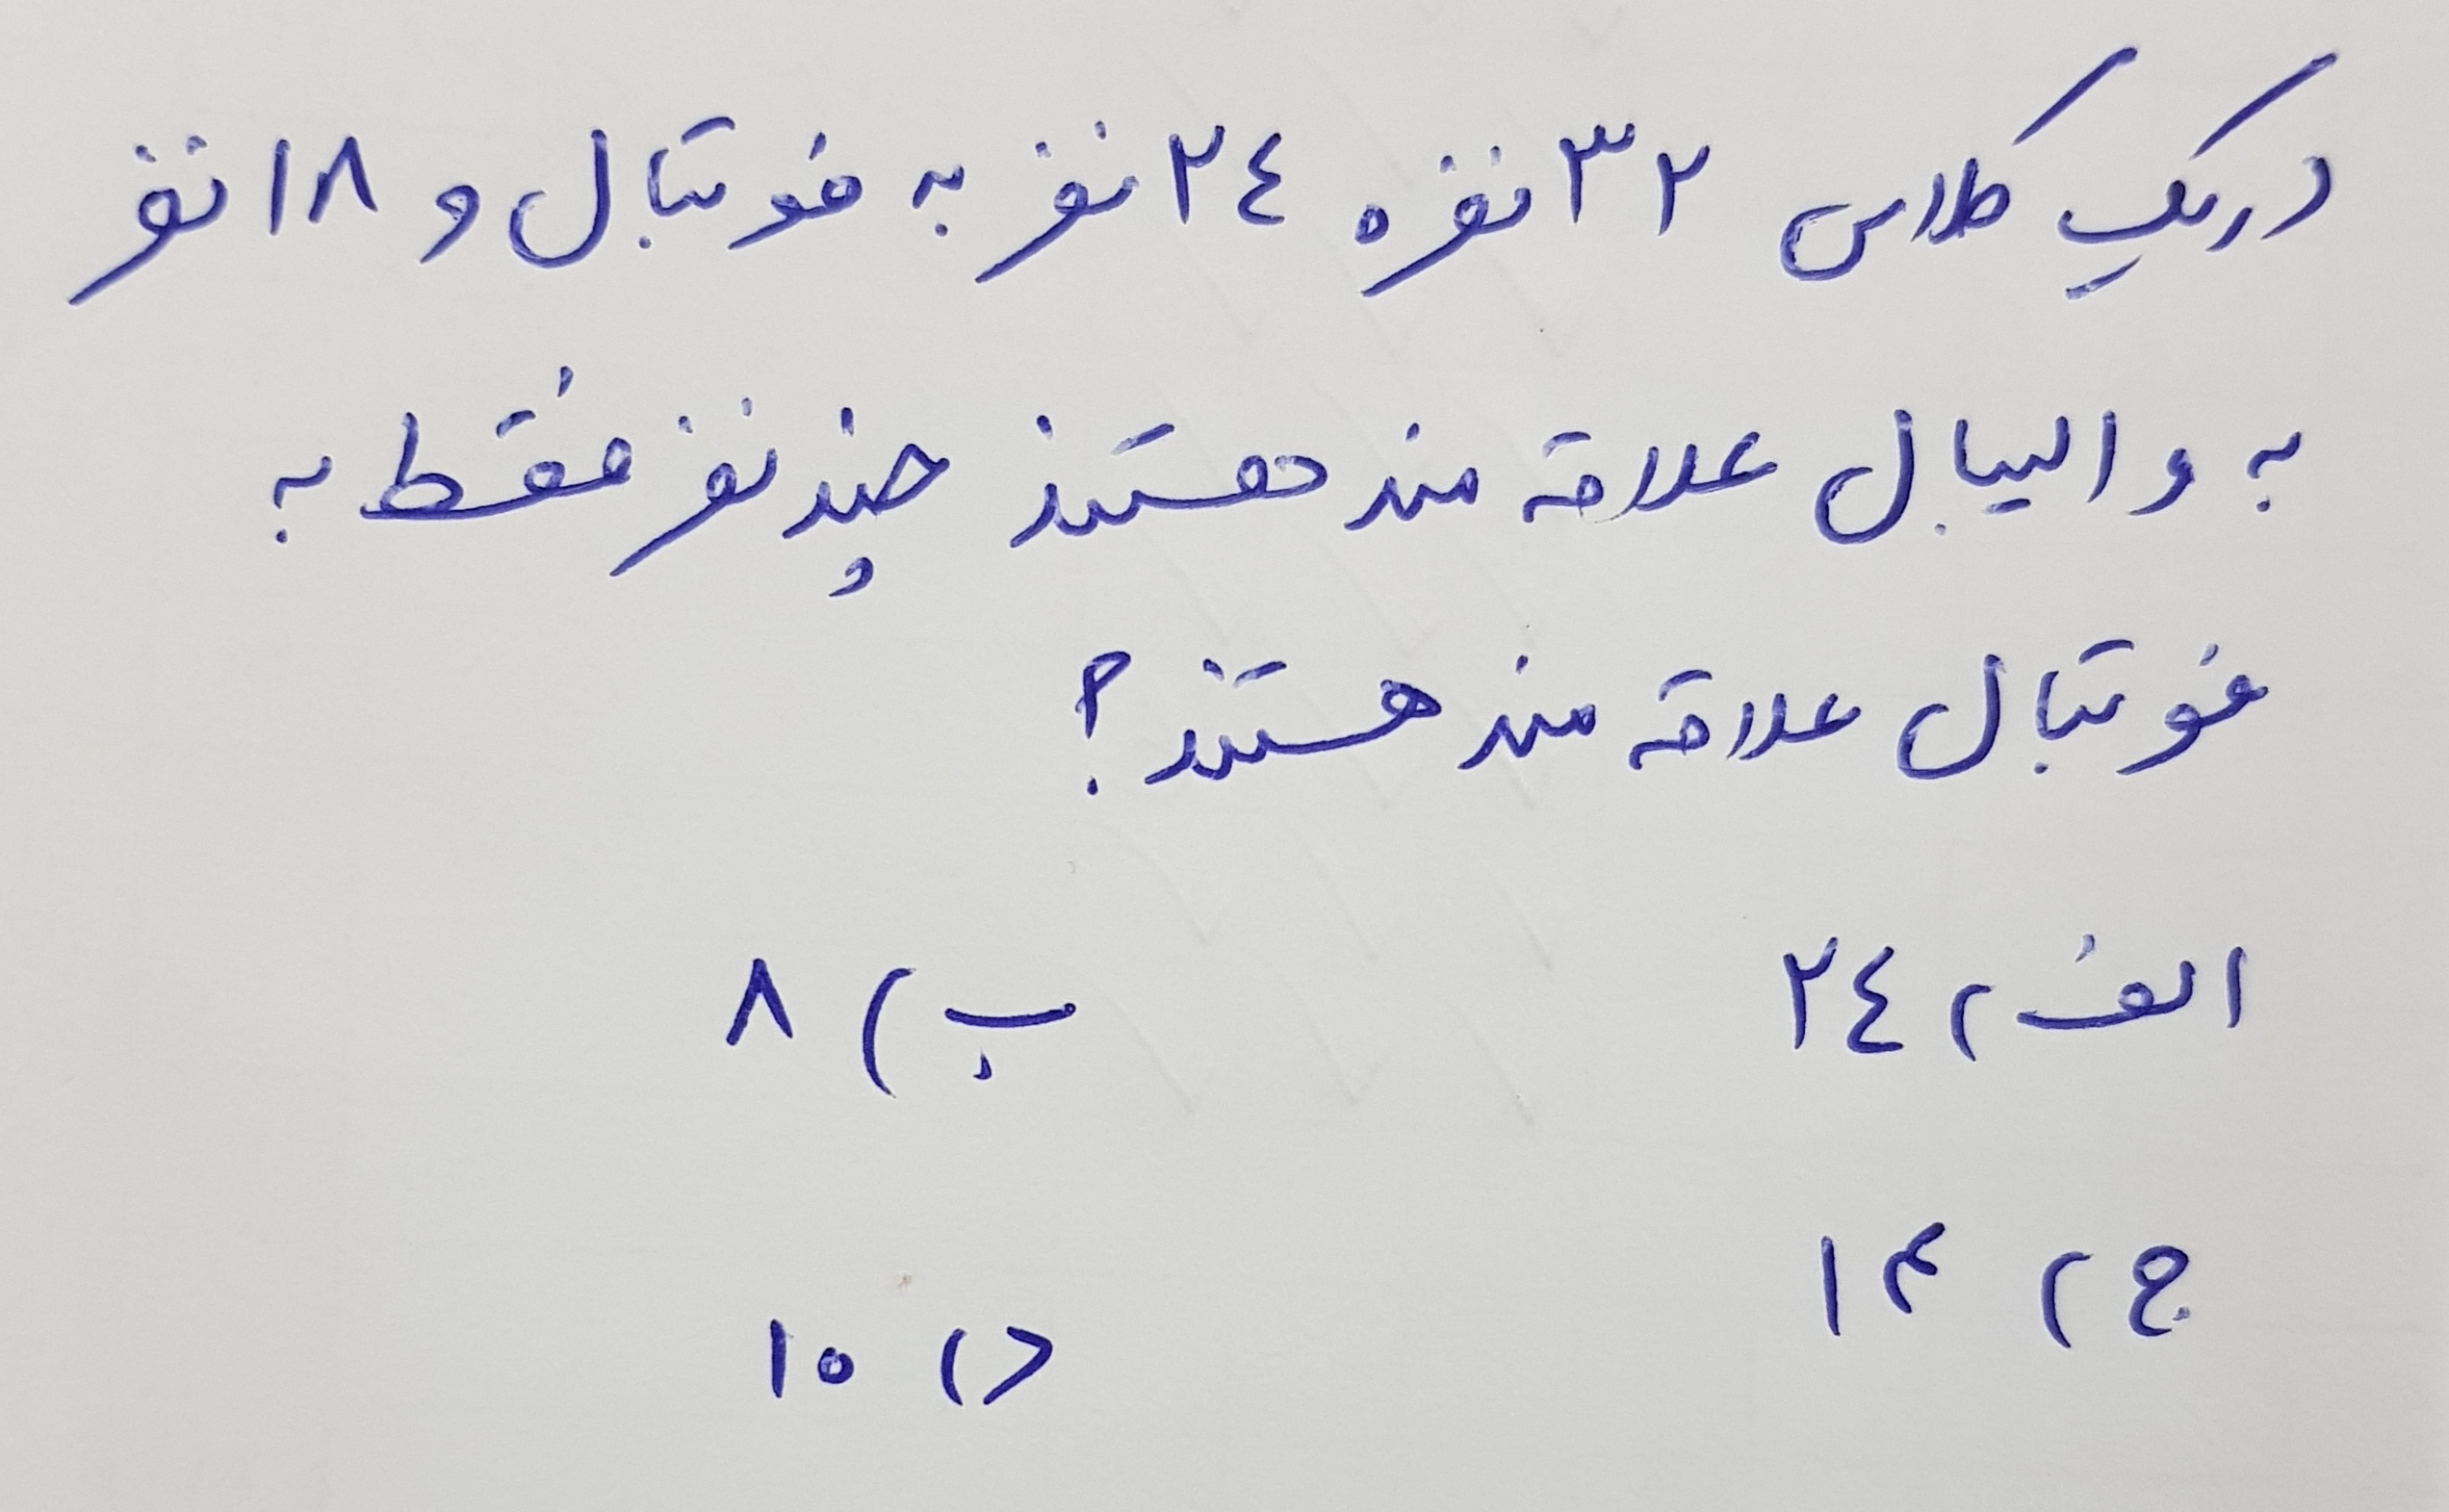 در یک کلاس ۳۲ نفره ۲٤ نفر به فوتبال و ۱۸ نفر
به والیبال علاقه مند هستند چند نفر فقط به
فوتبال علاقه مند هستند؟
الف) ۲٤
ب) ۸
ج) ۱۴
د) ۱۰